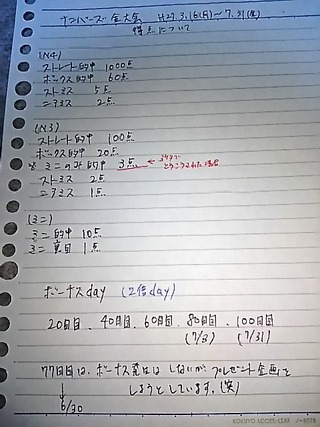 ナンバーズ全大会 H27.3.16(月)〜7.31(金)
得点について
(N4)
ストレート的中 1000点
ボックス的中 60点
ストミス 5点
ニアミス 2点
(N3)
ストレート的中 100点
ボックス的中 20点
※ ミニのみ的中 3点 ←
ストミス 2点
ニアミス 1点
(ミニ)
ミニ的中 10点
ミニ裏目 1点
ボーナスday (2倍day)
20日目、40日目、60日目、80日目、100日目
(7/3) (7/31)
77日目は、ボーナス茺はしないが、プレゼント企画を
しようとしています。(笑)
6/30
KOKUYO LOOSE-LEAF